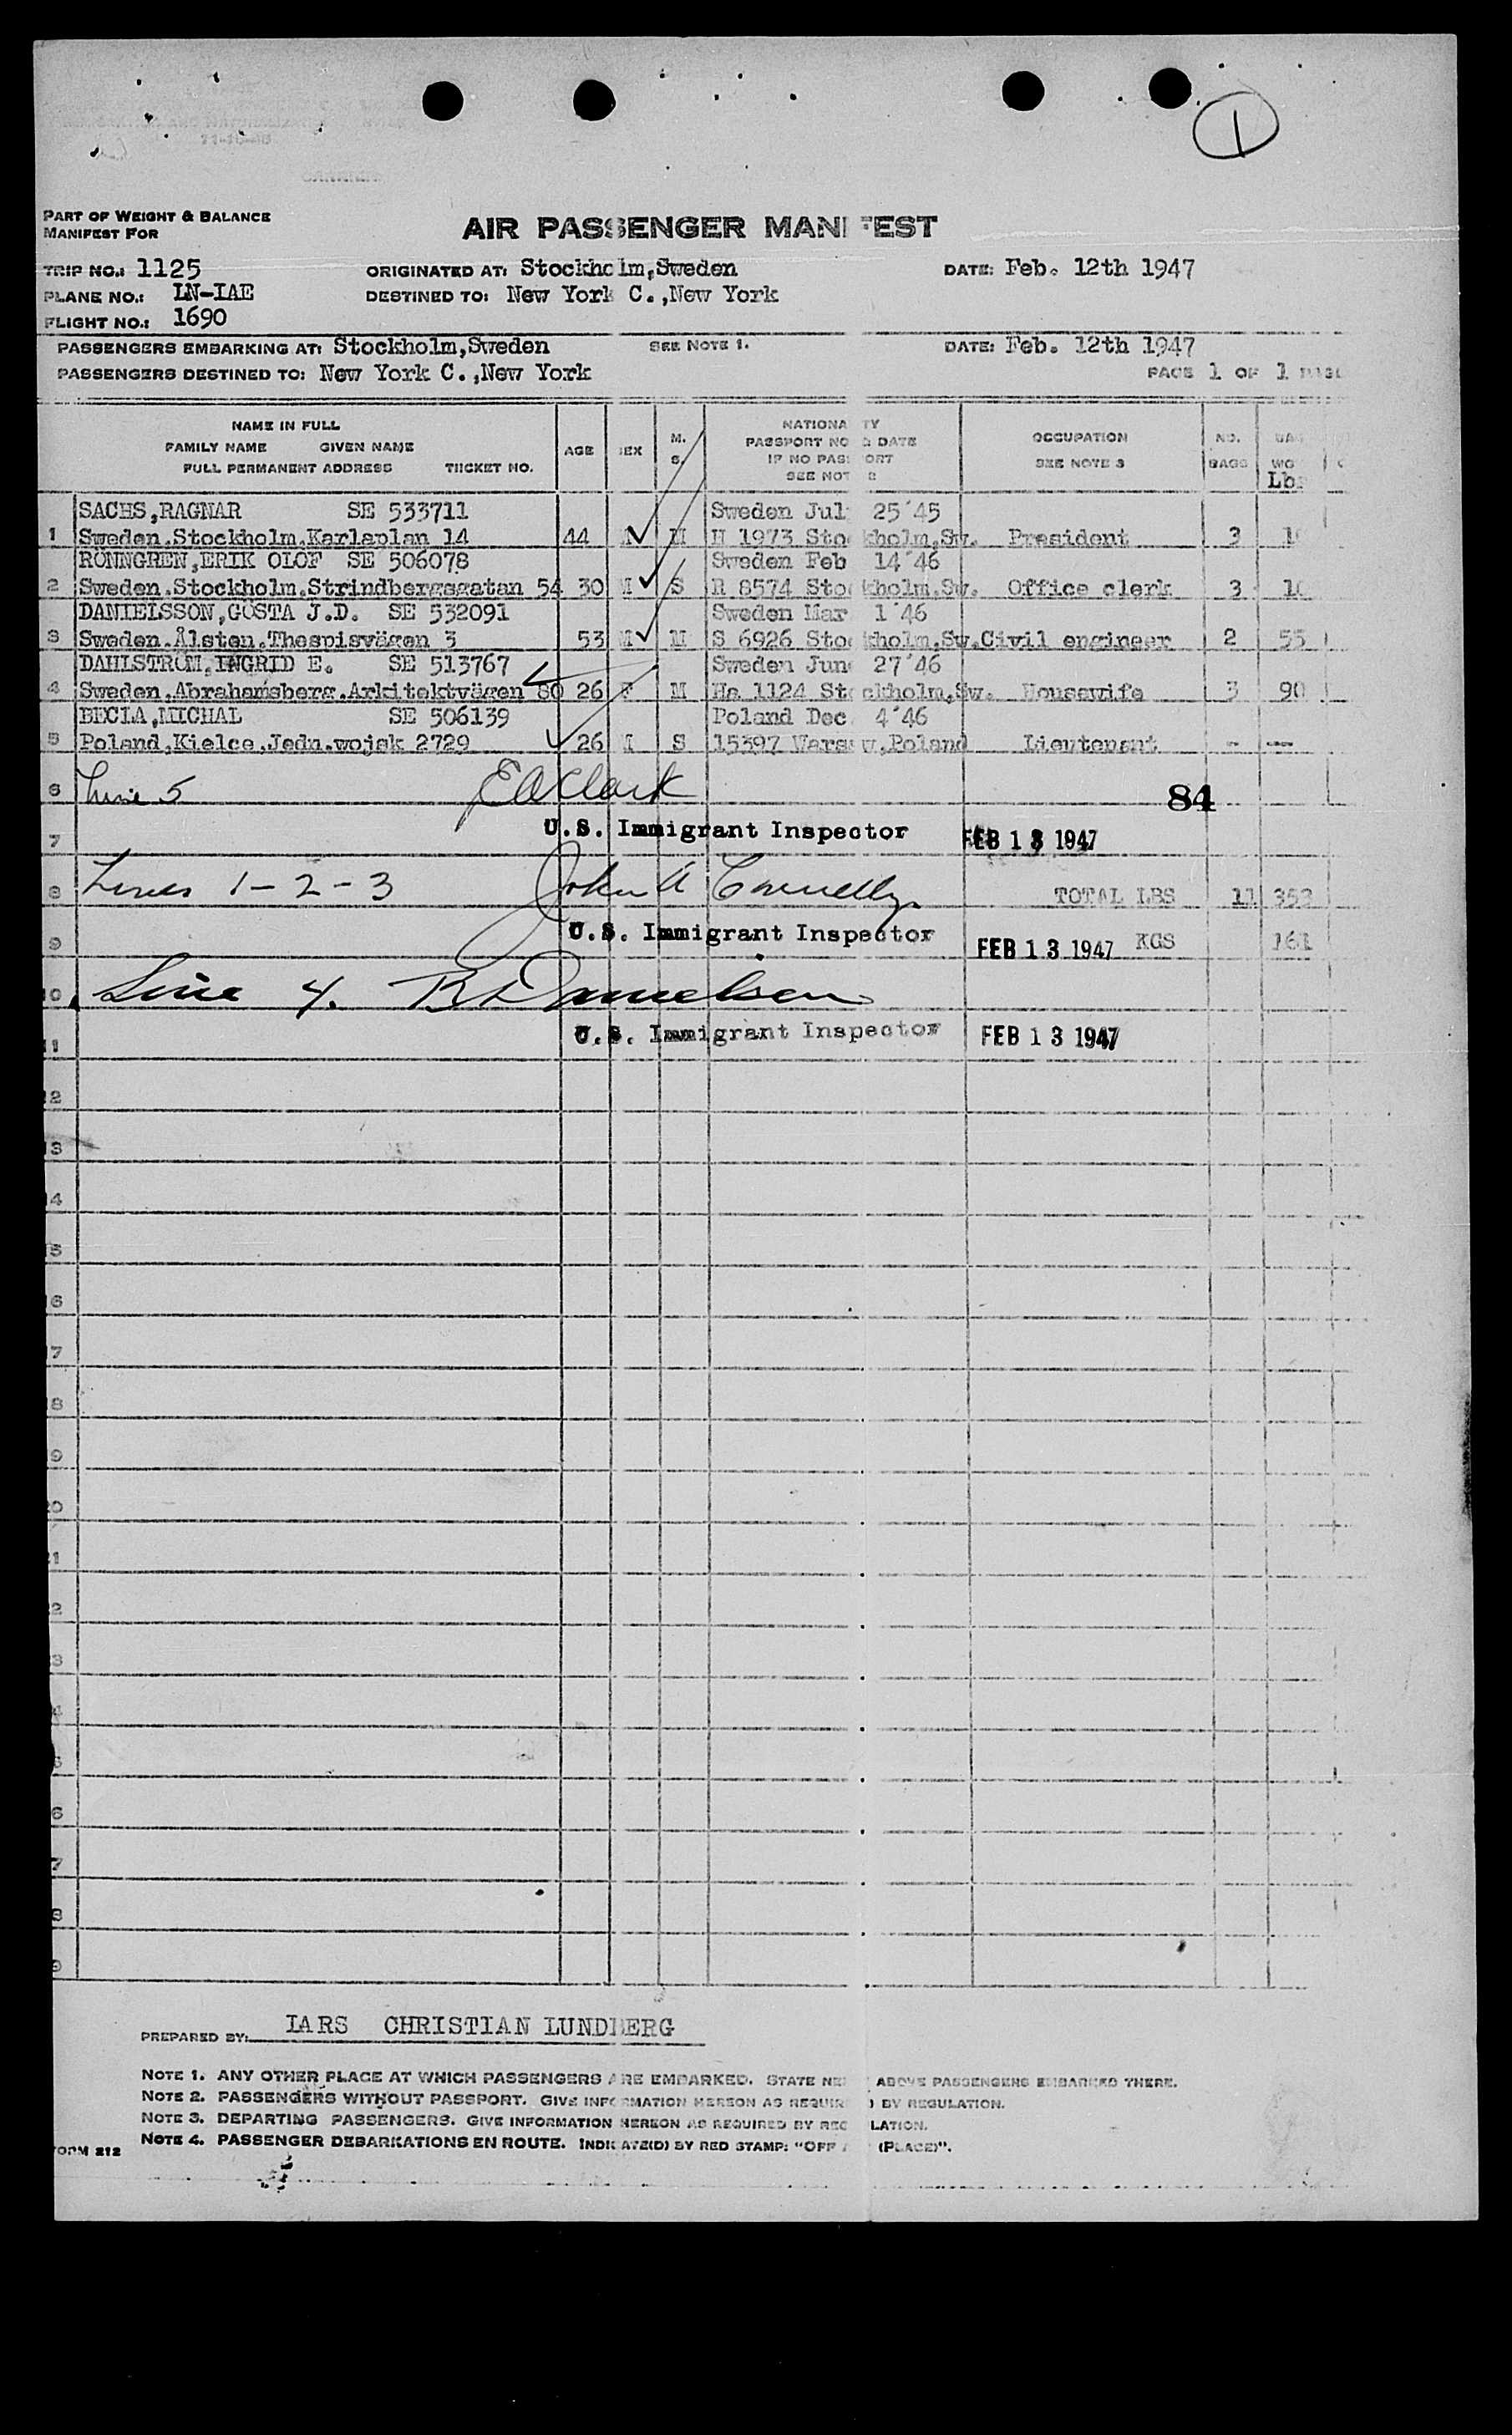 1
PART OF WEIGHT & BALANCE
MANIFEST FOR
AIR PASSENGER MANIFEST
TRIP NO.: 1125 ORIGINATED AT: Stockholm,Sweden DATE: Feb. 12th 1947
PLANE NO.: LN-IAE DESTINED TO: New York C.,New York
FLIGHT NO.: 1690
PASSENGERS EMBARKING AT: Stockholm,Sweden SEE NOTE 1. DATE: Feb. 12th 1947
PASSENGERS DESTINED TO: New York C.,New York PAGE 1 OF 1
NAME IN FULL
FAMILY NAME GIVEN NAME
FULL PERMANENT ADDRESS TICKET NO.
AGE
SEX
M.
S.
NATIONALITY
PASSPORT NO & DATE
IF NO PASSPORT
SEE NOTE 2
OCCUPATION
SEE NOTE 3
NO.
BAGS
Lbs
SACHS,RAGNAR SE 533711 Sweden Jul 25'45
1 Sweden.Stockholm.Karlaplan 14 44 M 1973 Stockholm,Sw. President 3
RÖNNGREN,ERIK OLOF SE 506078 Sweden Feb 14'46
2 Sweden.Stockholm.Strindbergsgatan 54 30 M S R 8574 Stockholm,Sw. Office clerk 3
DANIELSSON,GÖSTA J.D. SE 532091 Sweden Mar 1'46
3 Sweden.Ålsten.Thespisvägen 3 53 M M S 6926 Stockholm,Sw. Civil engineer 2 55
DAHLSTRÖM,INGRID E. SE 513767 Sweden June 27'46
4 Sweden.Abrahamsberg.Arkitektvägen 80 26 F M Ha 1124 Stockholm,Sw. Housewife 3 90
BECLA,MICHAL SE 506139 Poland Dec. 4'46
5 Poland,Kielce.Jedn.wojsk 2729 26 M S 15397 Warsaw,Poland Lieutenant - --
6 Line 5 E A Clark 84
7 U.S. Immigrant Inspector FEB 13 1947
8 Lines 1-2-3 John A Connelly TOTAL LBS 11 353
9 U.S. Immigrant Inspector FEB 13 1947 KGS 161
10 Line 4. R Danielsen
11 U.S. Immigrant Inspector FEB 13 1947
2
3
4
5
6
7
8
9
0
1
2
3
4
5
6
7
8
9
PREPARED BY: LARS CHRISTIAN LUNDBERG
NOTE 1. ANY OTHER PLACE AT WHICH PASSENGERS ARE EMBARKED. STATE ABOVE PASSENGERS EMBARKED THERE.
NOTE 2. PASSENGERS WITHOUT PASSPORT. GIVE INFORMATION HEREON AS REQUIRED BY REGULATION.
NOTE 3. DEPARTING PASSENGERS. GIVE INFORMATION HEREON AS REQUIRED BY REGULATION.
NOTE 4. PASSENGER DEBARKATIONS EN ROUTE. INDICATE(D) BY RED STAMP: "OFF (PLACE)".
FORM 212